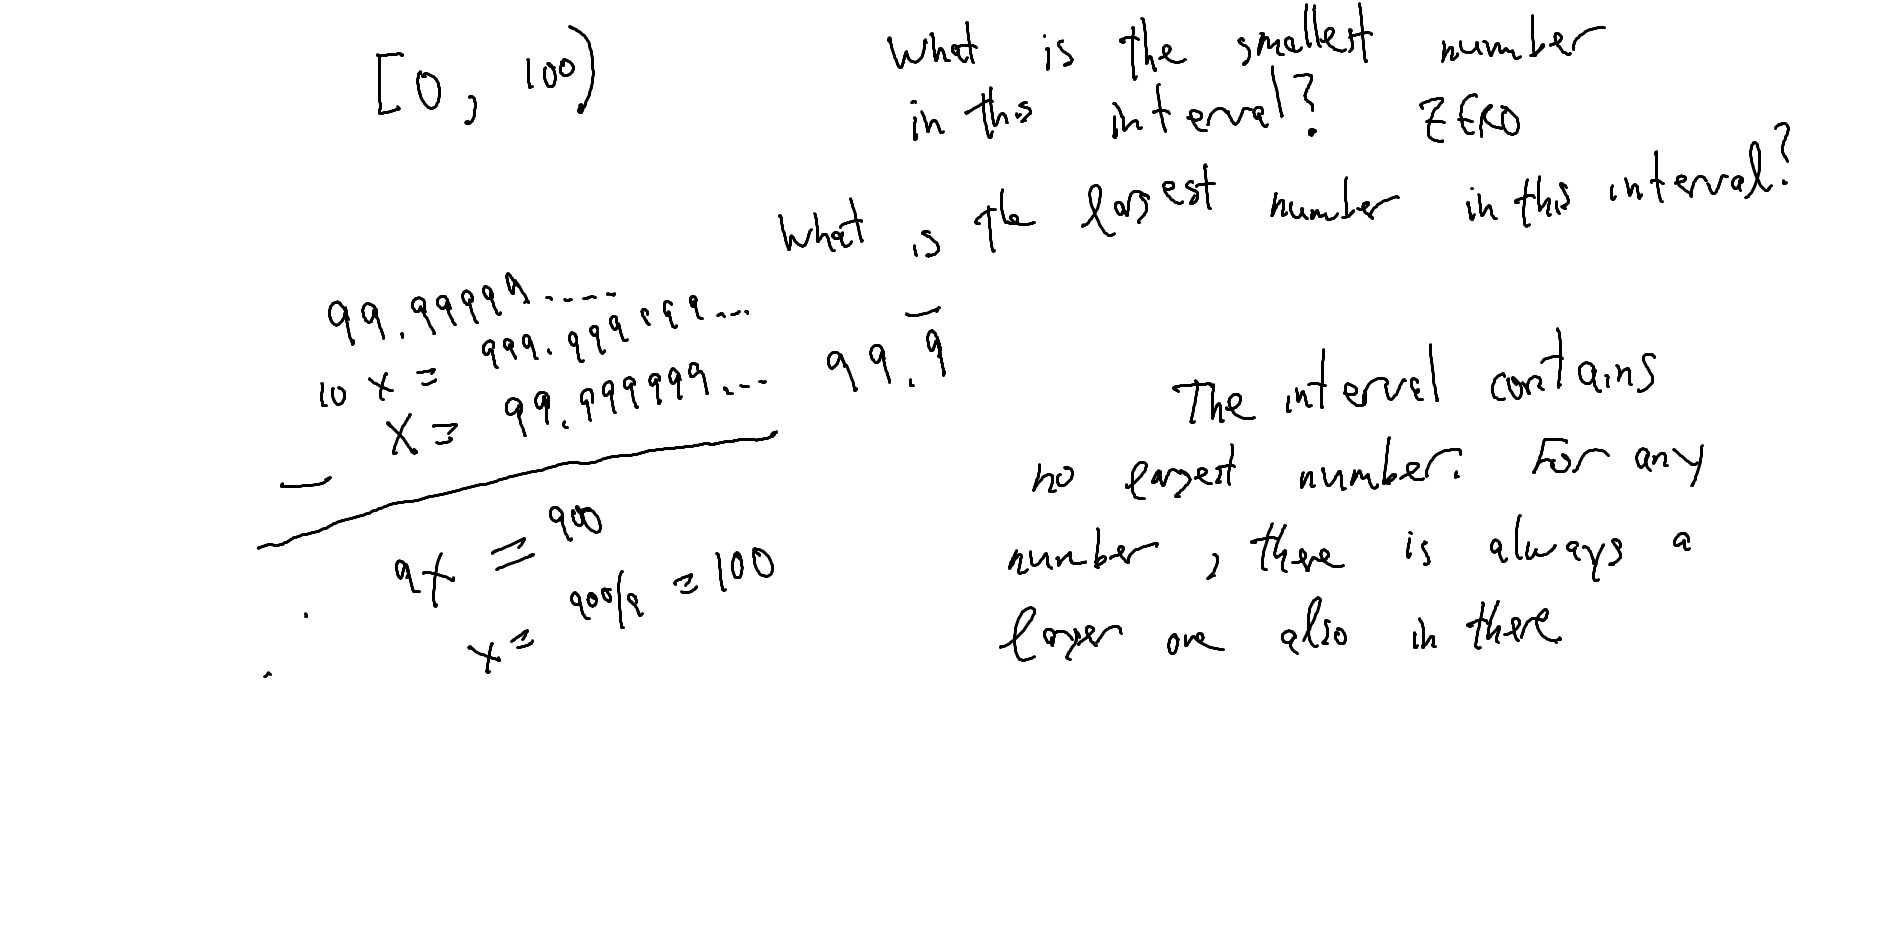 [0, 100)
What is the smallest number
in this interval? ZERO
What is the largest number in this interval?
99.99999.....
10 x = 999.999999...
x = 99.999999... 99.9̅
—
9x = 900
x = 900/9 = 100
The interval contains
no largest number. For any
number, there is always a
larger one also in there